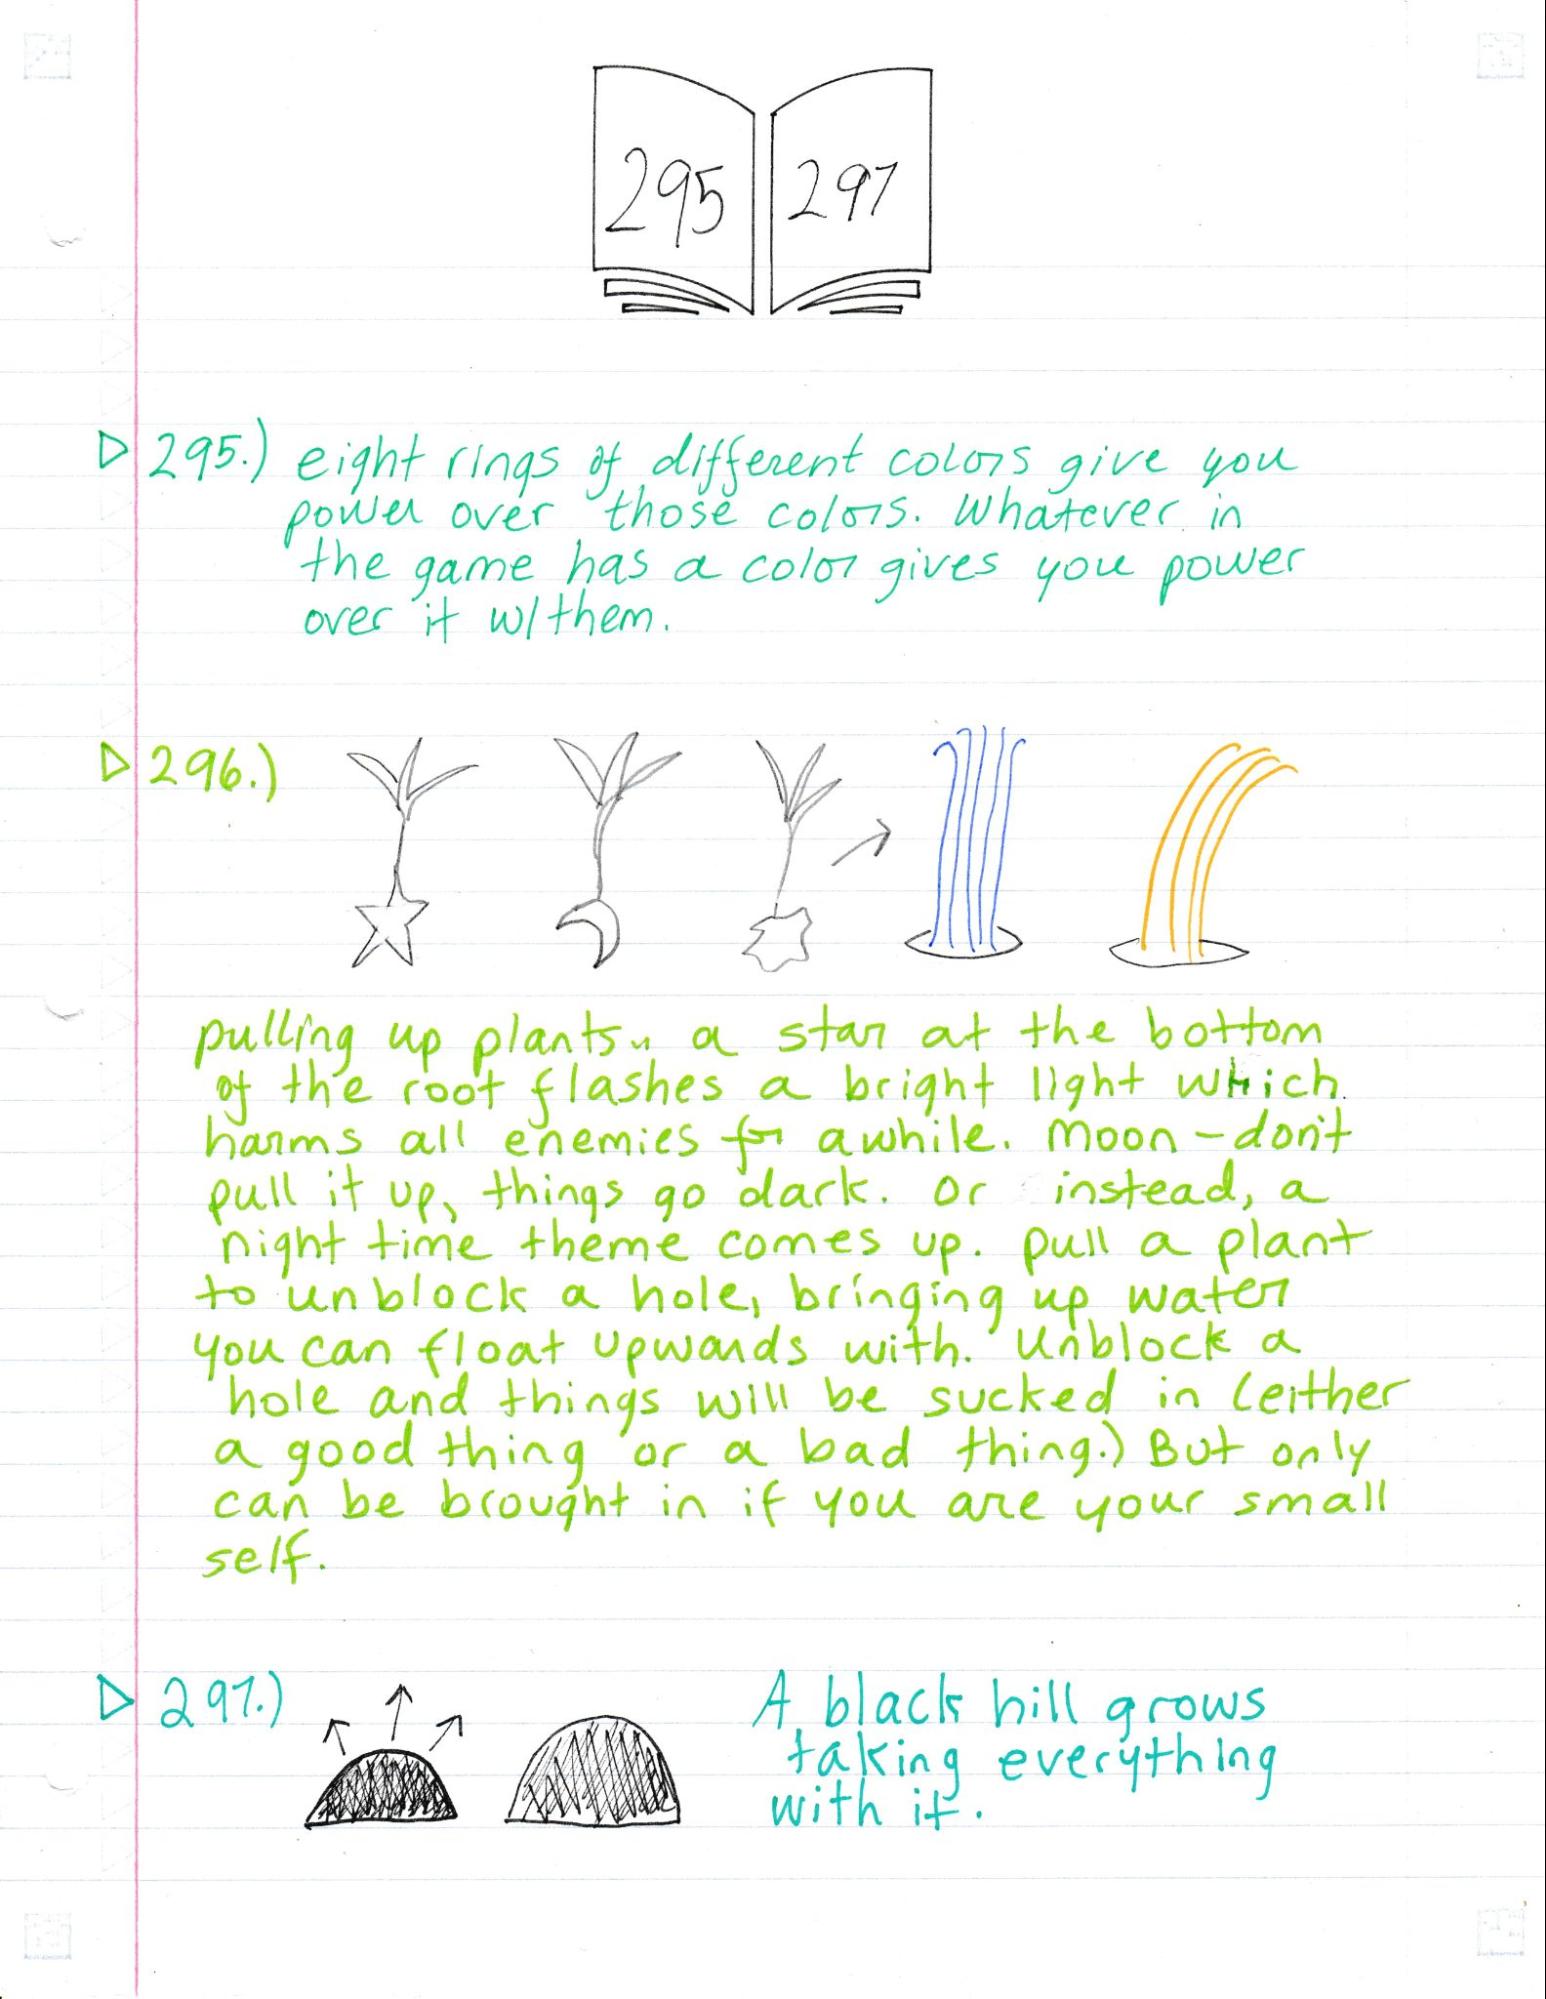 295 297
295.) eight rings of different colors give you
power over those colors. Whatever in
the game has a color gives you power
over it w/them.
296.)
pulling up plants.. a star at the bottom
of the root flashes a bright light which
harms all enemies for awhile. Moon - don't
pull it up, things go dark. Or instead, a
night time theme comes up. pull a plant
to unblock a hole, bringing up water
you can float upwards with. Unblock a
hole and things will be sucked in (either
a good thing or a bad thing.) But only
can be brought in if you are your small
self.
297.) A black hill grows
taking everything
with it.